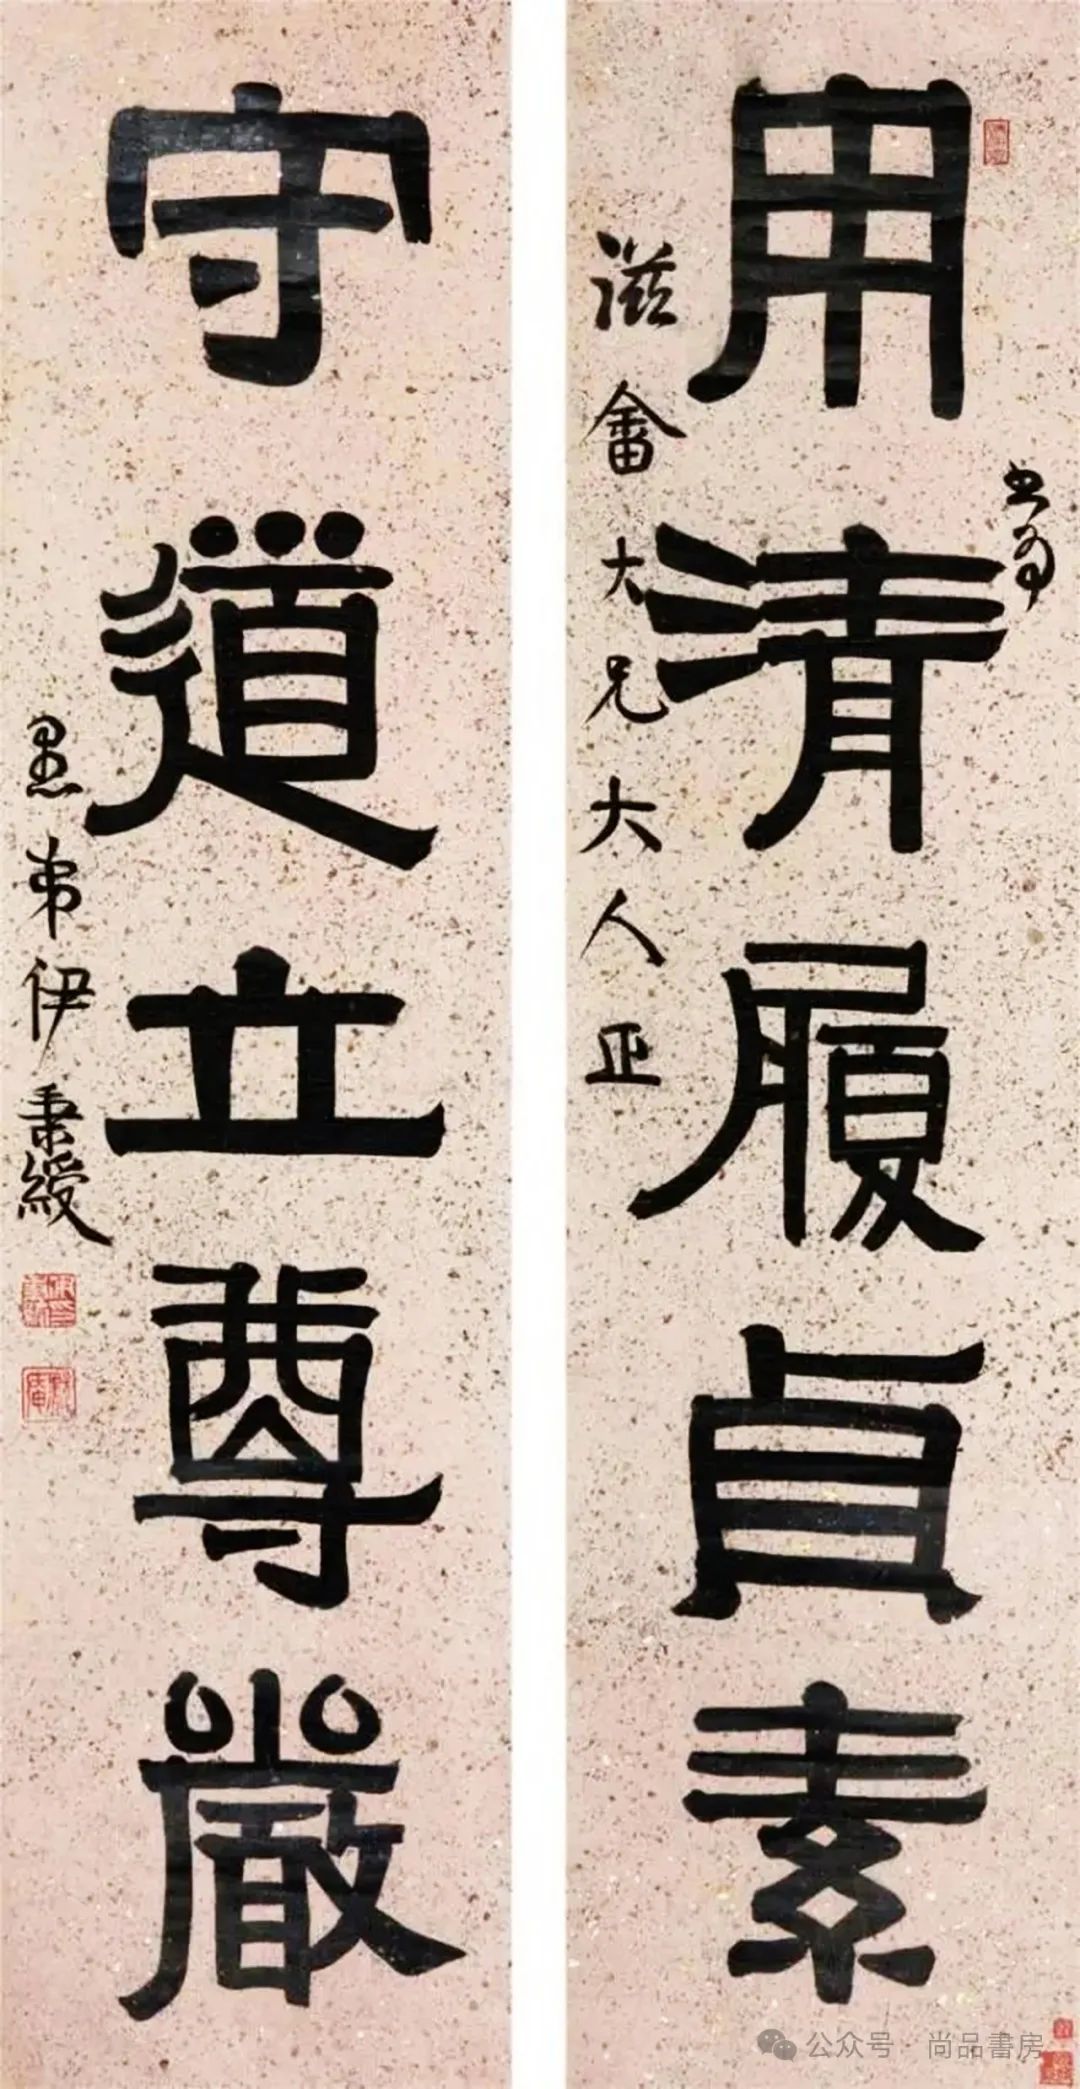 用清履貞素
書爲
滋畬大兄大人正
守道立尊嚴
愚弟伊秉綬
公众号·尚品書房